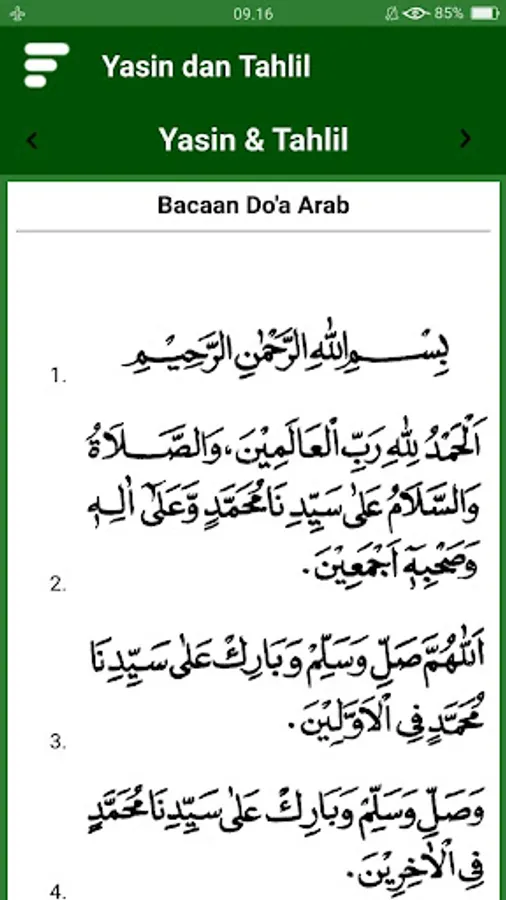 09.16
85%
Yasin dan Tahlil
Yasin & Tahlil
Bacaan Do'a Arab
بِسْــــمِ اللّٰهِ الرَّحْمٰنِ الرَّحِيْـــمِ
1.
اَلْحَمْدُ لِلّٰهِ رَبِّ الْعَالَمِيْنَ، وَالصَّـــلَاةُ
وَالسَّلَامُ عَلٰى سَيِّدِنَا مُحَمَّدٍ وَّعَلٰٓى اٰلِـــهٖ
وَصَحْبِهٖٓ اَجْمَعِيْنَ.
2.
اَللّٰهُمَّ صَلِّ وَسَلِّمْ وَبَارِكْ عَلٰى سَـيِّدِنَا
مُحَمَّدٍ فِى الْاَوَّلِيْنَ.
3.
وَصَلِّ وَسَلِّمْ وَبَارِكْ عَلٰى سَيِّدِنَا مُحَمَّدٍ
فِى الْاٰخِرِيْنَ.
4.